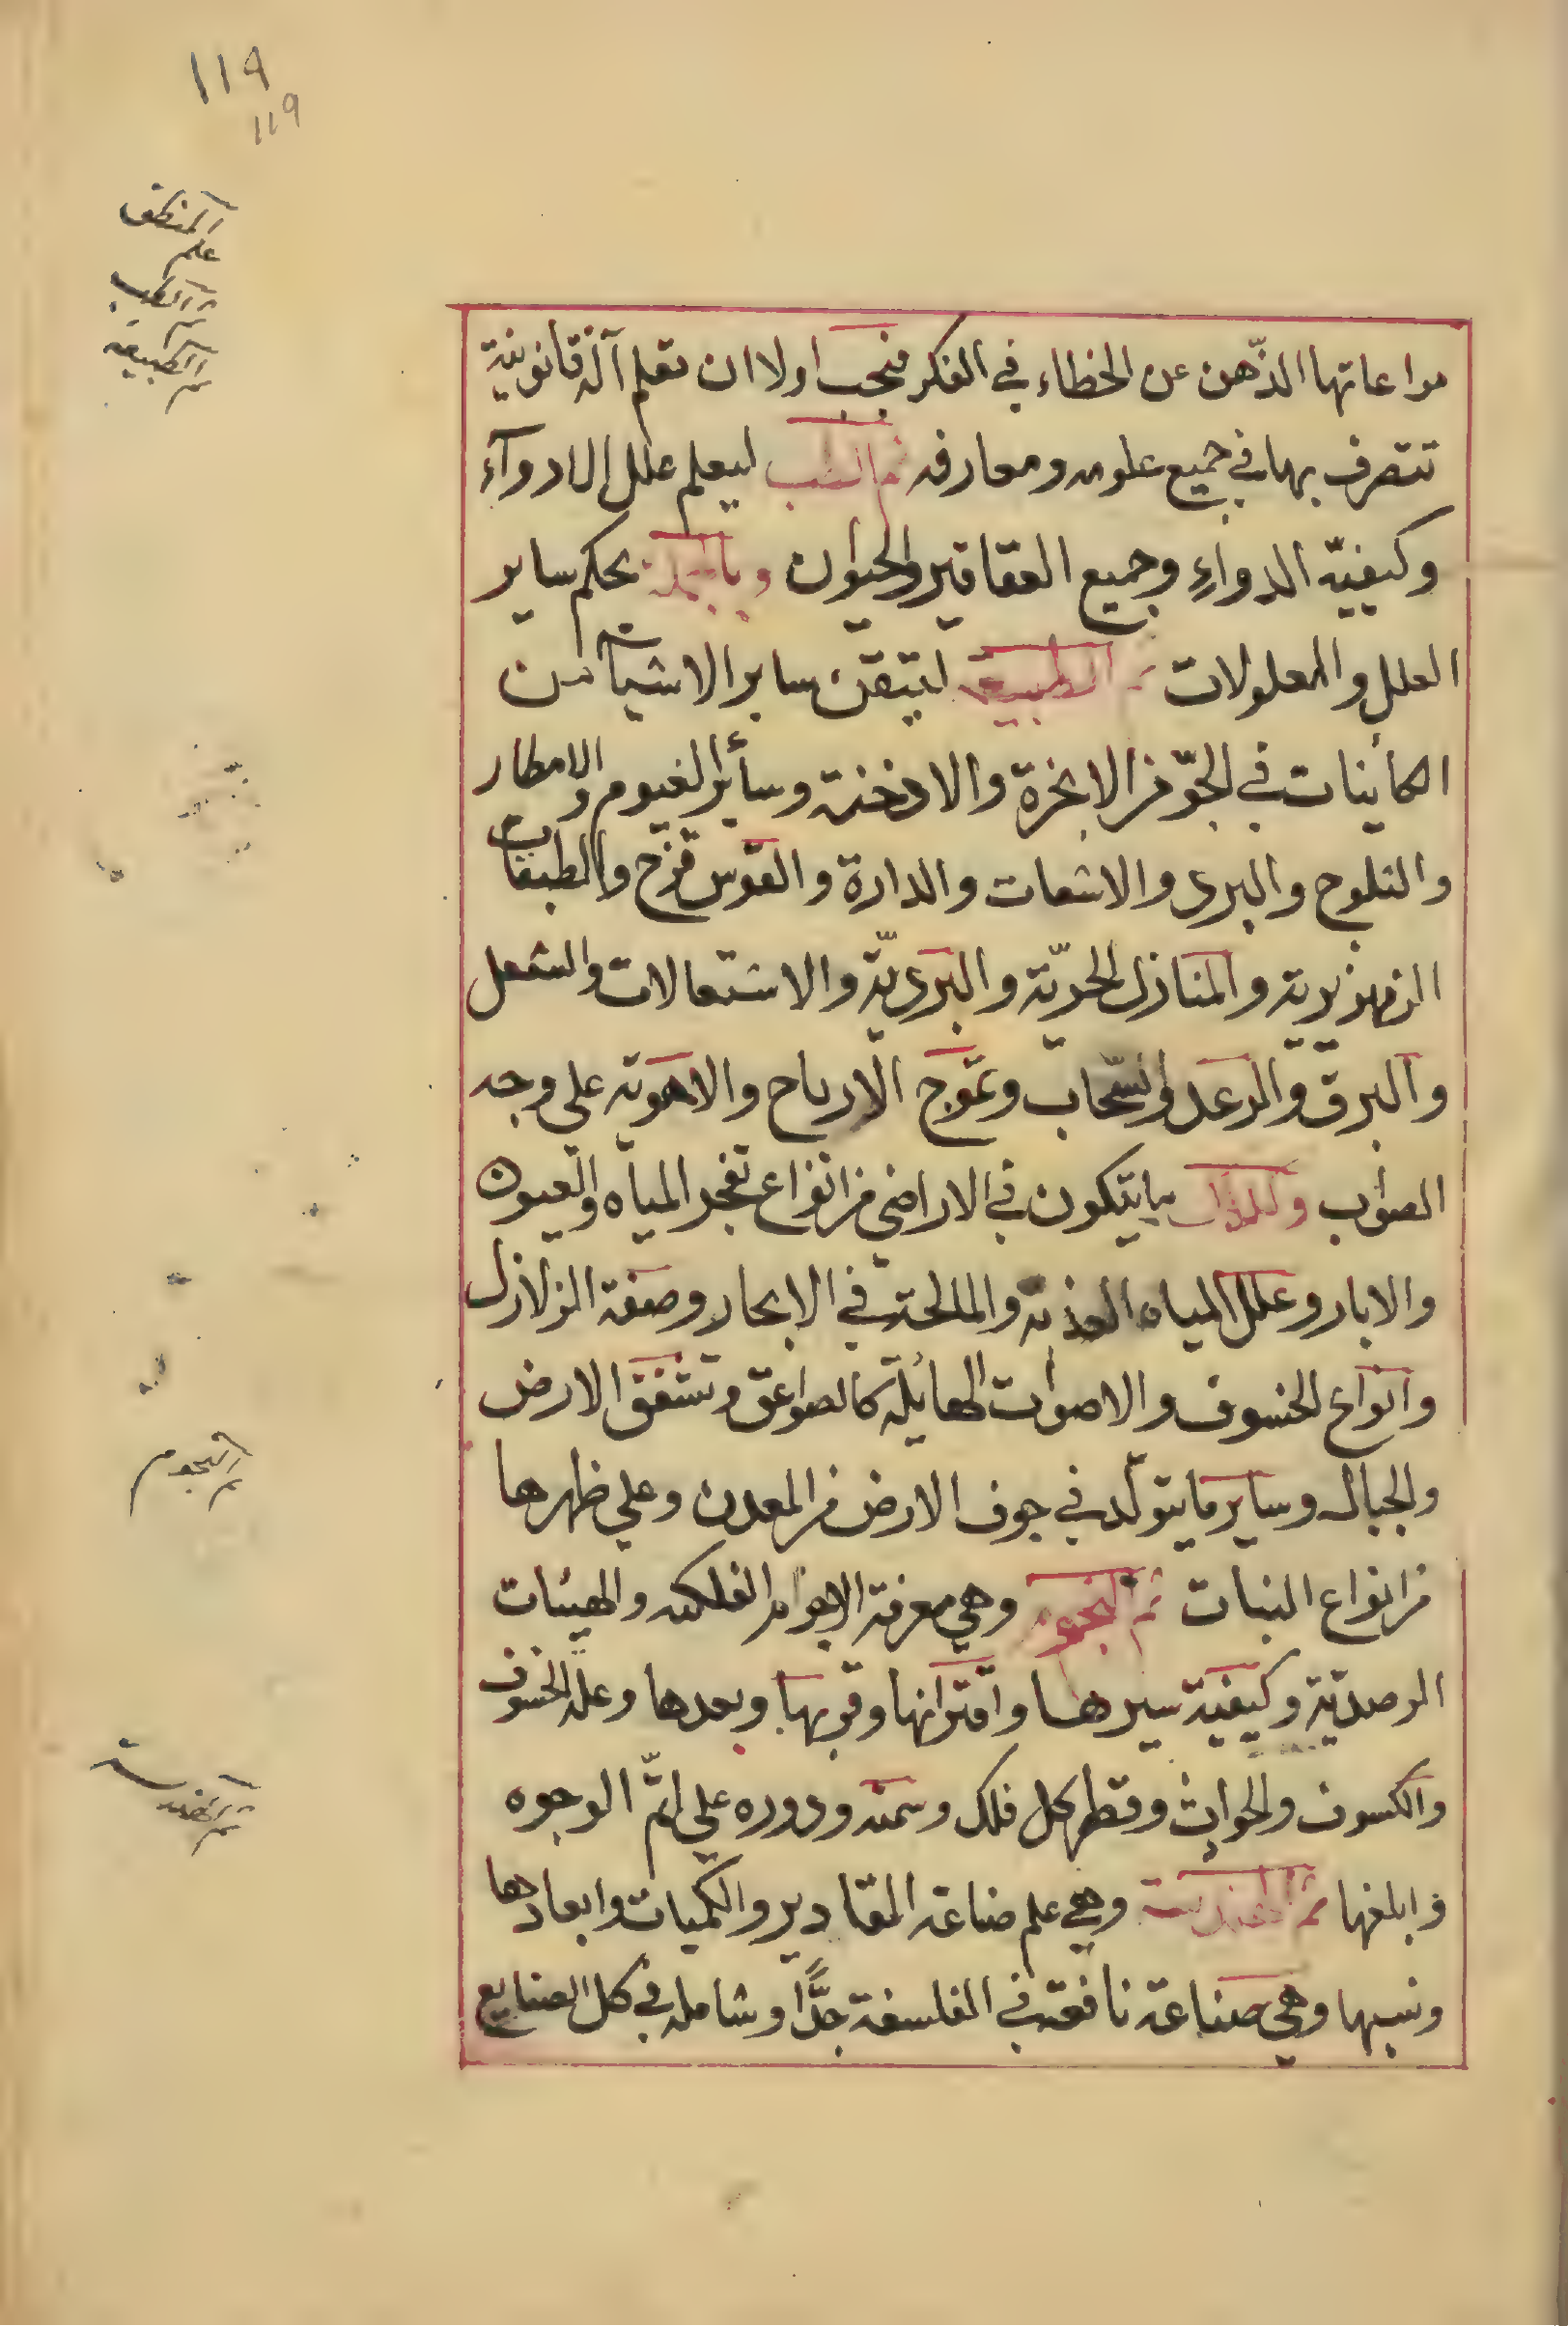 ١١٩
119
المنطق
علم
ثم الطب
ثم الطبيعة
مراعاتها الذّهن عن الخطاء في الفكر فيجب اولا ان تعلم آلة قانونيّة
تتصرف بها في جميع علومه ومعارفه ثم الطب ليعلم علل الادوآء
وكيفيّة الدواءِ وجميع العقاقير والحيوان وبالجملة يحكم ساير
العلل والمعلولات ثم الطبيعة ليتيقن ساير الاشيآء من
الكأينات في الجوّ من الابخرة والادخنة وسأير الغيوم والامطار
والثلوج والبرد والاشعات والدارة والقوس قزح والطبقات
الزمهريرية والمنازل الحرّيّة والبرديّة والاشتعالات والشعل
والبرق والرعد والسّحاب وتموج الارياح والاهوية على وجه
الصواب وكلذات ما يتكون في الاراضي من انواع تفجر المياه والعيون
والابار وعلل المياه العذبة والمالحة في الابحار وصفة الزلازل
وانواع الخسوف والاصوات الهايلة كالصواعق وتشقق الارض
والجبال وساير ما يتولّد في جوف الارض من المعدن وعلى ظهرها
من انواع النبات ثم النجوم وهي معرفة الاجرام الفلكية والهيئات
الرصديّة وكيفيّة سيرها واقترانها وقربها وبعدها وعلة الخسوف
والكسوف والحوادث وقطر كل فلك وسمته ودوره على اتمّ الوجوه
وابلغها ثم الهندسة وهي علم صناعة المقادير والكميات وابعادها
ونسبها وهي صناعة نافعة في الفلسفة جدًّا وشاملة في كل الصنايع
ثم النجوم
ثم الهندسة